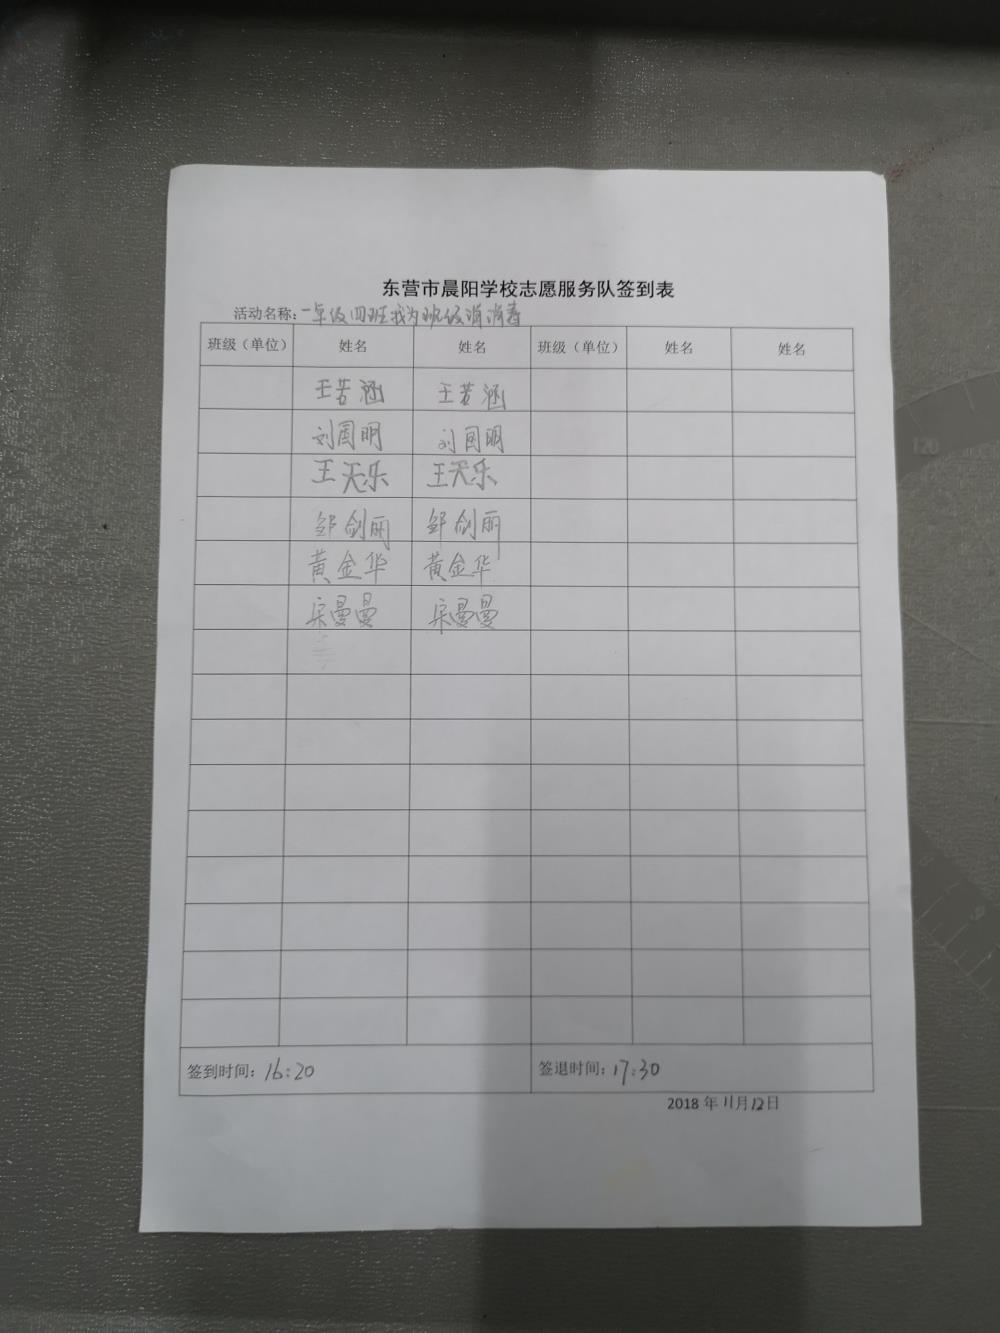 东营市晨阳学校志愿服务队签到表
活动名称：一年级四班我为班级消消毒
班级（单位） 姓名 姓名 班级（单位） 姓名 姓名
王若涵 王若涵
刘国明 刘国明
王天乐 王天乐
邹剑丽 邹剑丽
黄金华 黄金华
宋曼曼 宋曼曼
签到时间：16:20 签退时间：17:30
2018 年 11月12日
120